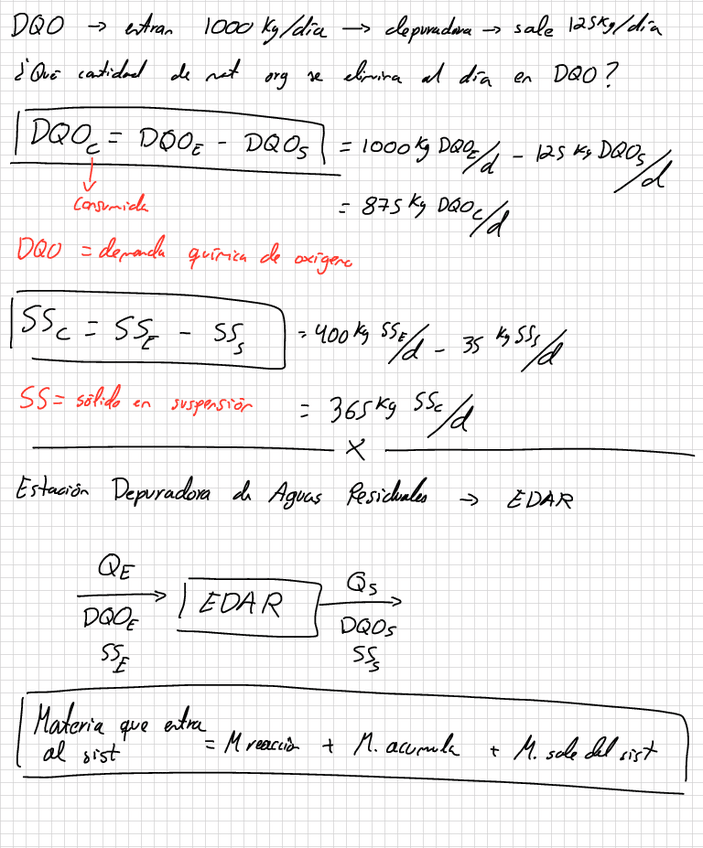 DQO → entran 1000 Kg/día → depuradora → sale 125Kg/día
¿Qué cantidad de mat org se elimina al día en DQO?
DQO_C = DQO_E - DQO_S = 1000 Kg DQO_E/d - 125 Kg DQO_S/d
Consumida
= 875 Kg DQO_C/d
DQO = demanda química de oxígeno
SS_C = SS_E - SS_S = 400 Kg SS_E/d - 35 Kg SS_S/d
SS = sólido en suspensión = 365 Kg SS_C/d
X
Estación Depuradora de Aguas Residuales → EDAR
Q_E
EDAR
Q_S
DQO_E
DQO_S
SS_E
SS_S
Materia que entra
al sist = M reacción + M. acumula + M. sale del sist